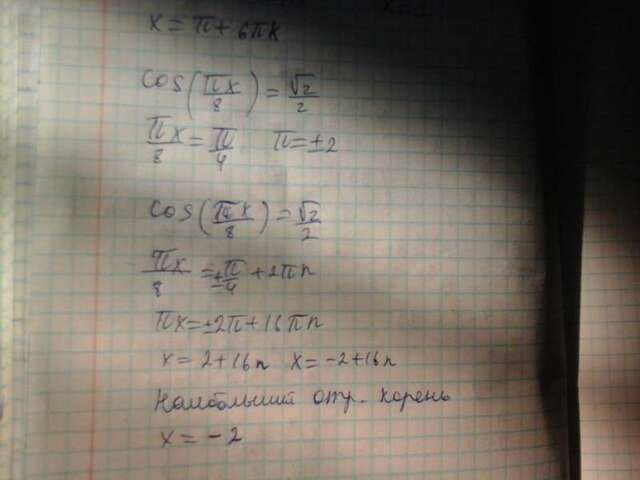 x = π + 6πk
cos(πx/8) = √2/2
πx/8 = π/4 π = ±2
cos(πx/8) = √2/2
πx/8 = ±π/4 + 2πn
πx = ±2π + 16πn
x = 2 + 16n x = -2 + 16n
Наибольший отр. корень
x = -2